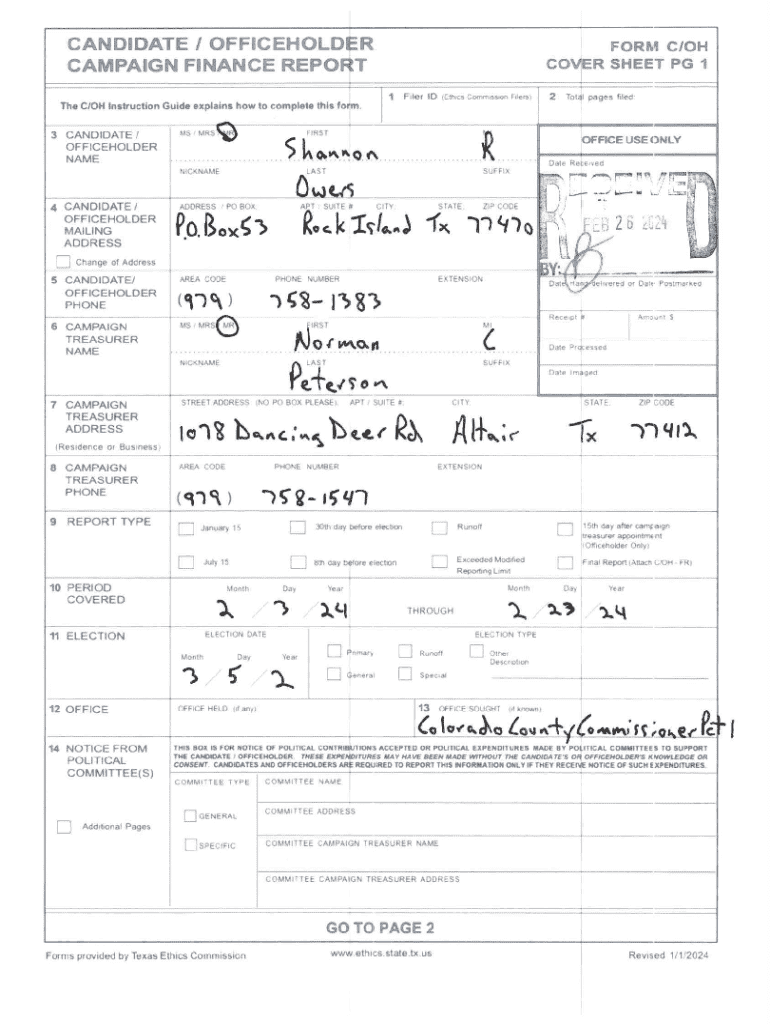 CANDIDATE / OFFICEHOLDER
CAMPAIGN FINANCE REPORT
FORM C/OH
COVER SHEET PG 1
The C/OH Instruction Guide explains how to complete this form.
1 Filer ID (Ethics Commission Filers)
2 Total pages filed:
3 CANDIDATE / OFFICEHOLDER NAME
MS / MRS / MR FIRST
Shannon R
NICKNAME LAST SUFFIX
Owers
OFFICE USE ONLY
Date Received
RECEIVED
FEB 26 2024
BY:
4 CANDIDATE / OFFICEHOLDER MAILING ADDRESS
Change of Address
ADDRESS / PO BOX; APT / SUITE #; CITY; STATE; ZIP CODE
P.O. Box 53 Rock Island Tx 77470
5 CANDIDATE/ OFFICEHOLDER PHONE
AREA CODE PHONE NUMBER EXTENSION
(979) 758-1383
Date Hand-delivered or Date Postmarked
Receipt # Amount $
Date Processed
Date Imaged
6 CAMPAIGN TREASURER NAME
MS / MRS / MR FIRST MI
Norman C
NICKNAME LAST SUFFIX
Peterson
7 CAMPAIGN TREASURER ADDRESS
(Residence or Business)
STREET ADDRESS (NO PO BOX PLEASE); APT / SUITE #; CITY; STATE; ZIP CODE
1078 Dancing Deer Rd Altair Tx 77412
8 CAMPAIGN TREASURER PHONE
AREA CODE PHONE NUMBER EXTENSION
(979) 758-1547
9 REPORT TYPE
January 15
30th day before election
Runoff
15th day after campaign treasurer appointment (Officeholder Only)
July 15
8th day before election
Exceeded Modified Reporting Limit
Final Report (Attach C/OH - FR)
10 PERIOD COVERED
Month Day Year
2 / 3 / 24
THROUGH
Month Day Year
2 / 23 / 24
11 ELECTION
ELECTION DATE
Month Day Year
3 / 5 / 2
ELECTION TYPE
Primary
Runoff
Other Description
General
Special
12 OFFICE
OFFICE HELD (if any)
13 OFFICE SOUGHT (if known)
Colorado County Commissioner Pct 1
14 NOTICE FROM POLITICAL COMMITTEE(S)
Additional Pages
THIS BOX IS FOR NOTICE OF POLITICAL CONTRIBUTIONS ACCEPTED OR POLITICAL EXPENDITURES MADE BY POLITICAL COMMITTEES TO SUPPORT
THE CANDIDATE / OFFICEHOLDER. THESE EXPENDITURES MAY HAVE BEEN MADE WITHOUT THE CANDIDATE'S OR OFFICEHOLDER'S KNOWLEDGE OR
CONSENT. CANDIDATES AND OFFICEHOLDERS ARE REQUIRED TO REPORT THIS INFORMATION ONLY IF THEY RECEIVE NOTICE OF SUCH EXPENDITURES.
COMMITTEE TYPE
GENERAL
SPECIFIC
COMMITTEE NAME
COMMITTEE ADDRESS
COMMITTEE CAMPAIGN TREASURER NAME
COMMITTEE CAMPAIGN TREASURER ADDRESS
GO TO PAGE 2
Forms provided by Texas Ethics Commission
www.ethics.state.tx.us
Revised 1/1/2024